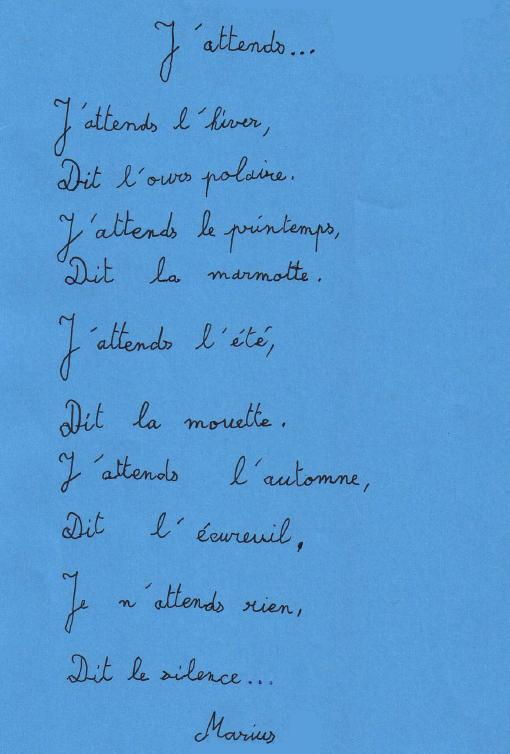 J'attends...
J'attends l'hiver,
Dit l'ours polaire.
J'attends le printemps,
Dit la marmotte.
J'attends l'été,
Dit la mouette.
J'attends l'automne,
Dit l'écureuil,
Je n'attends rien,
Dit le silence...
Marius